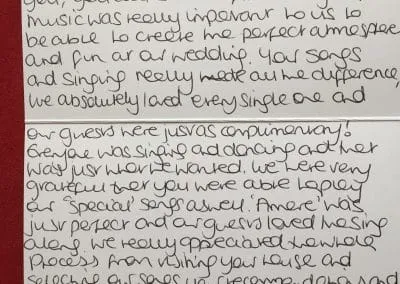 music was really important to us to
be able to create the perfect atmosphere
and fun at our wedding. Your songs
and singing really made all the difference,
we absolutely loved every single one and
our guests were just as complimentary!
Everyone was singing and dancing and that
was just what we wanted. We were very
grateful that you were able to play
our "special" songs as well. 'Amore' was
just perfect and our guests loved the sing
along. We really appreciated the whole
process from visiting your house and
selecting our songs